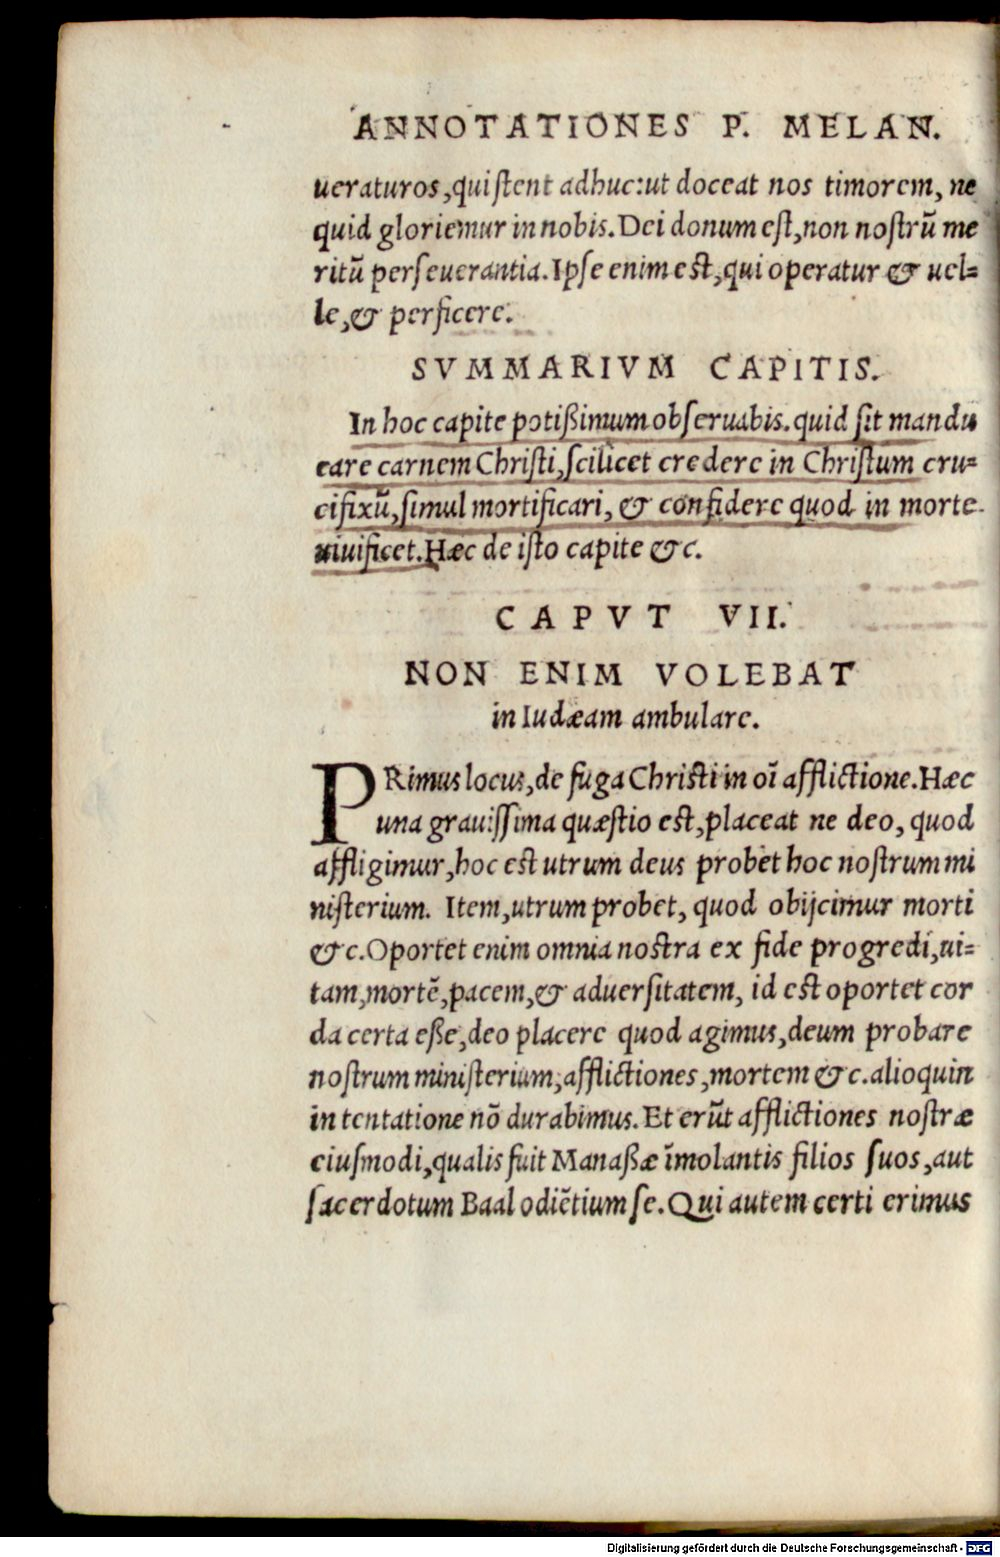 ANNOTATIONES P. MELAN.
ueraturos, qui stent adhuc: ut doceat nos timorem, ne
quid gloriemur in nobis. Dei donum est, non nostrũ me
ritũ perseuerantia. Ipse enim est, qui operatur & uel=
le, & perficere.
SVMMARIVM CAPITIS.
In hoc capite potißimum obseruabis. quid sit mandu
care carnem Christi, scilicet credere in Christum cru=
cifixũ, simul mortificari, & confidere quod in morte
uiuificet. Hæc de isto capite &c.
CAPVT VII.
NON ENIM VOLEBAT
in Iudæam ambulare.
PRimus locus, de fuga Christi in oĩ afflictione. Hæc
una grauissima quæstio est, placeat ne deo, quod
affligimur, hoc est utrum deus probet hoc nostrum mi
nisterium. Item, utrum probet, quod obijcimur morti
&c. Oportet enim omnia nostra ex fide progredi, ui=
tam, mortẽ, pacem, & aduersitatem, id est oportet cor
da certa eße, deo placere quod agimus, deum probare
nostrum ministerium, afflictiones, mortem &c. alioquin
in tentatione nõ durabimus. Et erũt afflictiones nostræ
eiusmodi, qualis fuit Manaßæ ĩmolantis filios suos, aut
sacerdotum Baal odiẽtium se. Qui autem certi erimus
Digitalisierung gefördert durch die Deutsche Forschungsgemeinschaft - DFG